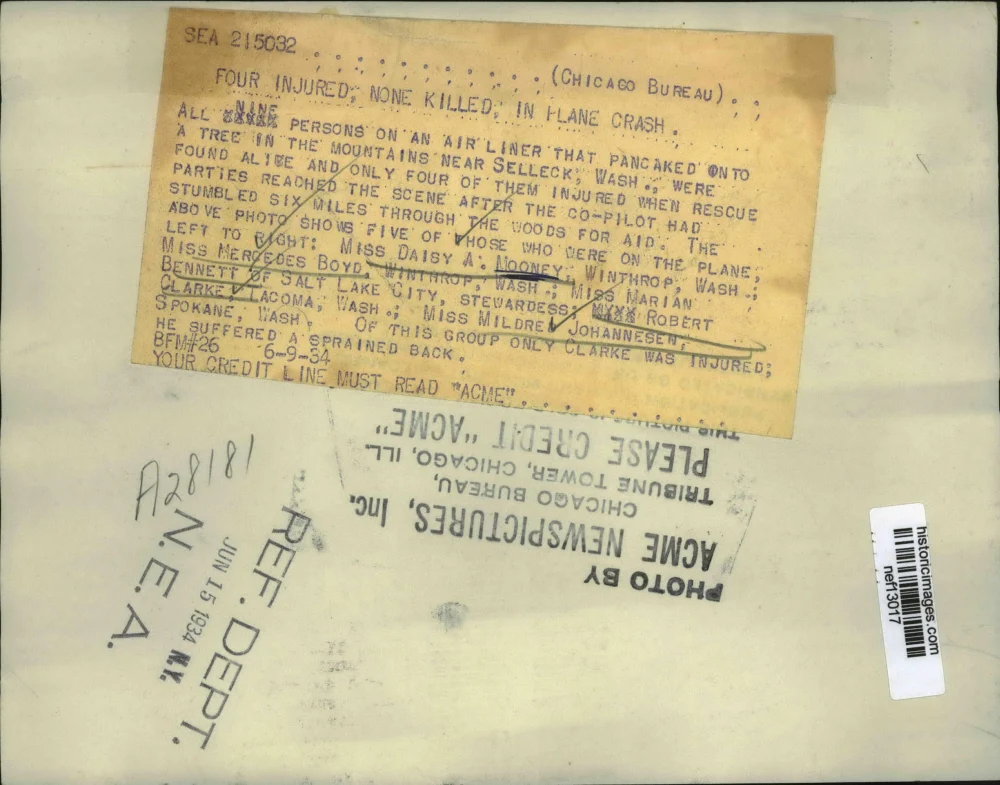 SEA 215032 . . . . . . . . . . . (CHICAGO BUREAU). . .
FOUR INJURED, NONE KILLED, IN PLANE CRASH.
NINE
ALL PERSONS ON AN AIR LINER THAT PANCAKED ONTO
A TREE IN THE MOUNTAINS NEAR SELLECK, WASH., WERE
FOUND ALIVE AND ONLY FOUR OF THEM INJURED WHEN RESCUE
PARTIES REACHED THE SCENE AFTER THE CO-PILOT HAD
STUMBLED SIX MILES THROUGH THE WOODS FOR AID. THE
ABOVE PHOTO SHOWS FIVE OF THOSE WHO WERE ON THE PLANE;
LEFT TO RIGHT: MISS DAISY A. MOONEY, WINTHROP, WASH.;
MISS MERCEDES BOYD, WINTHROP, WASH.; MISS MARIAN
BENNETT OF SALT LAKE CITY, STEWARDESS; ROBERT
CLARKE, TACOMA, WASH.; MISS MILDRED JOHANNESEN,
SPOKANE, WASH. OF THIS GROUP ONLY CLARKE WAS INJURED;
HE SUFFERED A SPRAINED BACK.
BFM#26 6-9-34
YOUR CREDIT LINE MUST READ "ACME". . . . . . .
PHOTO BY
ACME NEWSPICTURES, Inc.
CHICAGO BUREAU,
TRIBUNE TOWER, CHICAGO, ILL.
PLEASE CREDIT "ACME"
THIS PICTURE
A28181
REF. DEPT.
JUN 15 1934 N.Y.
N.E.A.
historicimages.com
nef13017